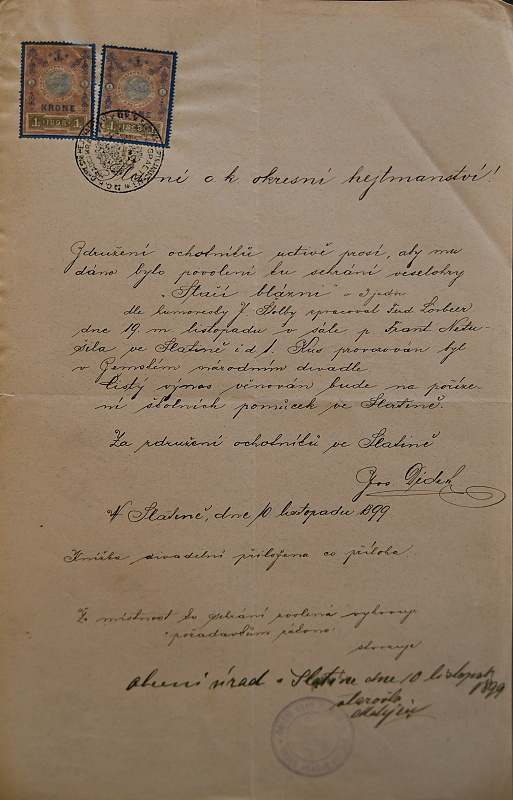 1 KRONE 1 1898 1
1 KRONE 1 1898
c. k. okresní hejtmanství!
Združení ochotníků uctivě prosí, aby mu
dáno bylo povolení ku sehrání veselohry
"Staří blázni" o 3 jedn.
dle humoresky J. Štolby spracoval Ferd Lorbeer
dne 19. m. listopadu v sále p. Frant
ve Slatině č. d. 1. Kus provozován byl
v Zemském národním divadle.
Čistý výnos věnován bude na poříze-
ní školních pomůcek ve Slatině.
Za združení ochotníků ve Slatině
Jos Dědek
V Slatině, dne 10 listopadu 1899
Knížka divadelní přiložena co příloha.
Že místnost ku sehrání zvolená vyhovuje
požadavkům zákona
stvrzuje
obecní úřad v Slatině dne 10 listopadu
1899
starosta